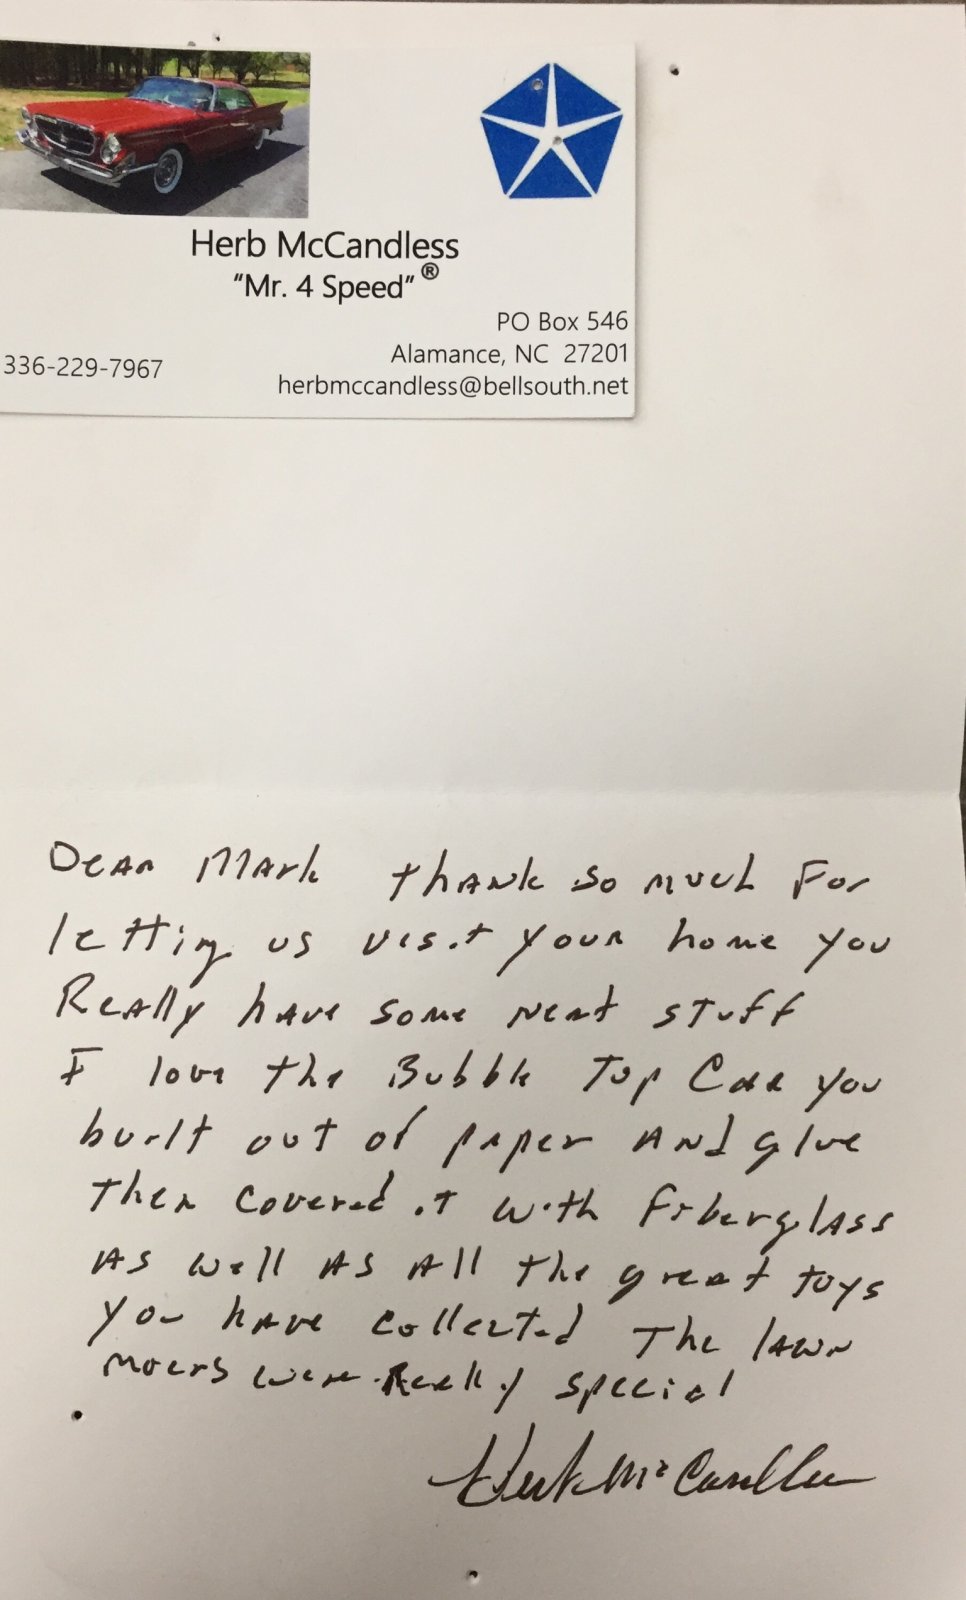 Herb McCandless
"Mr. 4 Speed"®
PO Box 546
336-229-7967
Alamance, NC 27201
herbmccandless@bellsouth.net
Dear Mark thank so much For
letting us visit your home you
Really have some neat stuff
I love the Bubble Top Car you
built out of paper and glue
then covered it with fiberglass
as well as all the great toys
you have collected The lawn
moers were Really special
Herb McCandless